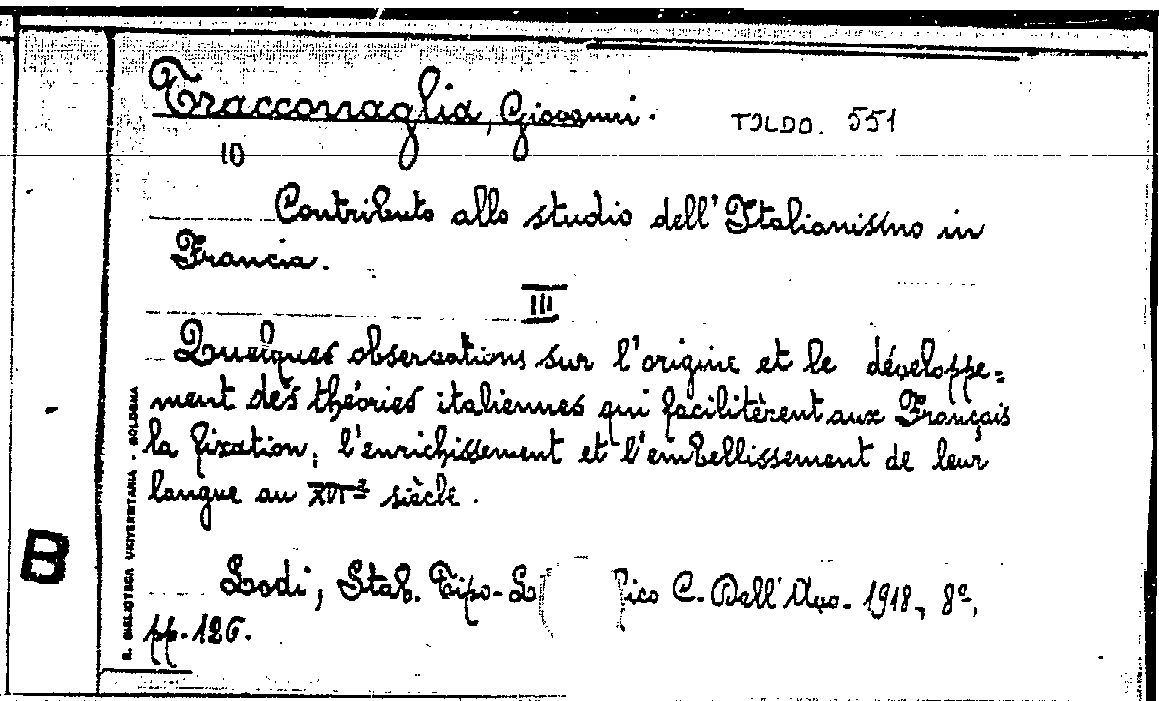 Tracconaglia, Giovanni.
TOLDO. 551
10
Contributo allo studio dell'Italianismo in
Francia.
III
Quelques observations sur l'origine et le développe=
ment des théories italiennes qui facilitèrent aux Français
la fixation, l'enrichissement et l'embellissement de leur
langue au XVIe siècle.
Lodi, Stab. Tipo-L fico C. Dell'Avo. 1918, 8º,
pp. 126.
R. BIBLIOTECA UNIVERSITARIA - BOLOGNA
B